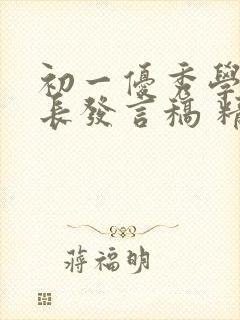 初一優秀學
長發言稿 精
蔣福明